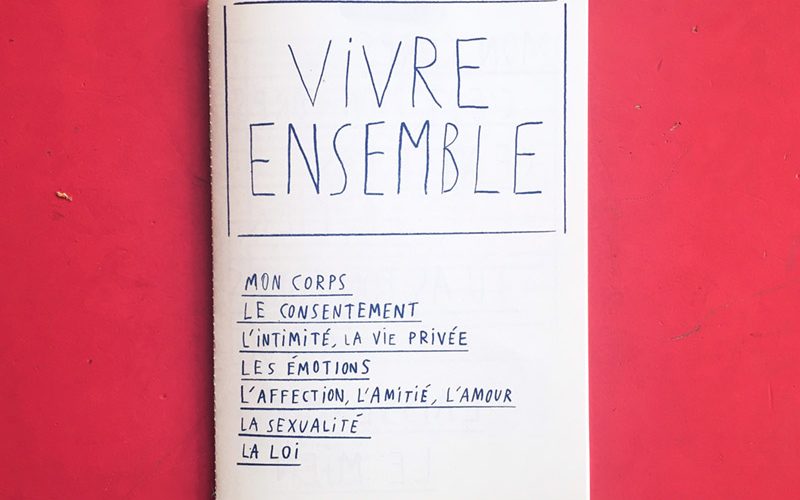 ViVRE
ENSEMBLE
MON CORPS
LE CONSENTEMENT
L'iNTiMiTÉ, LA ViE PRiVÉE
LES ÉMOTiONS
L'AFFECTiON, L'AMiTiÉ, L'AMOUR
LA SEXUALiTÉ
LA LOi